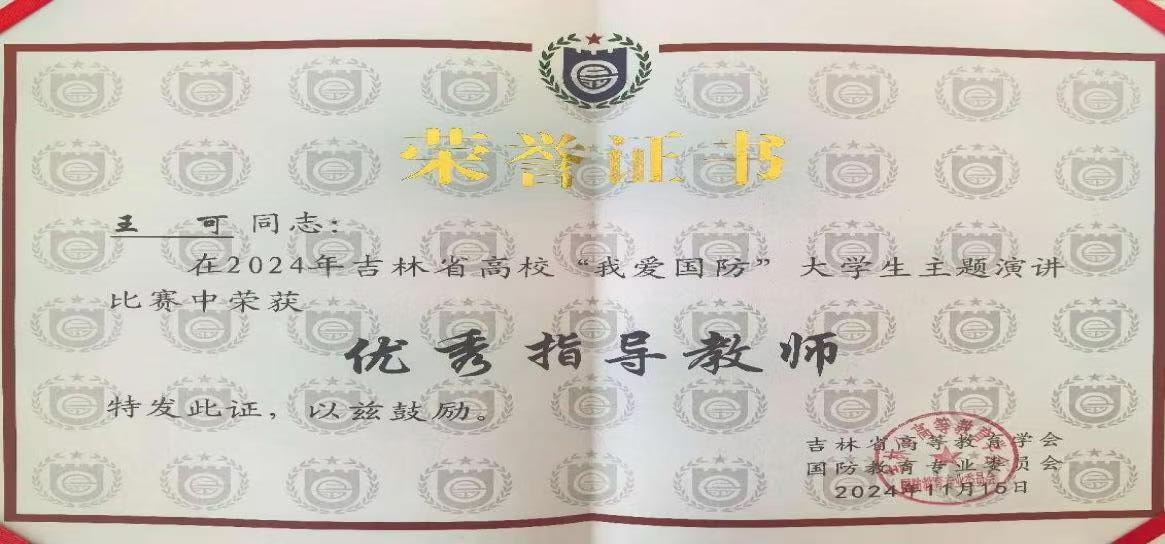 荣誉证书
王 可 同志：
在2024年吉林省高校“我爱国防”大学生主题演讲
比赛中荣获
优秀指导教师
特发此证，以兹鼓励。
吉林省高等教育学会
国防教育专业委员会
2024年11月15日